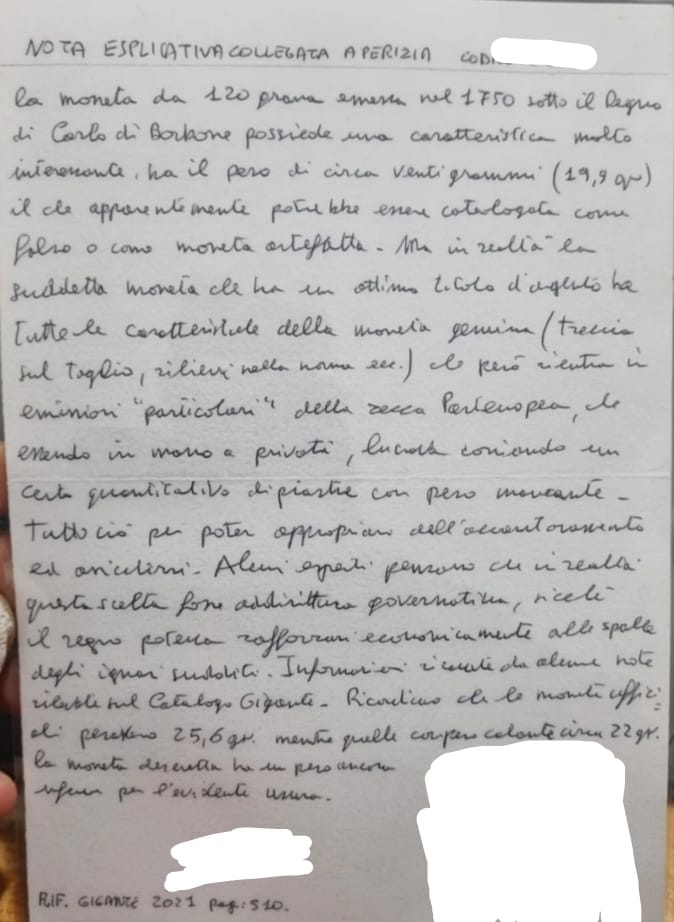 NOTA ESPLICATIVA COLLEGATA A PERIZIA
La moneta da 120 grana emessa nel 1750 sotto il Regno
di Carlo di Borbone possiede una caratteristica molto
interessante, ha il peso di circa venti grammi (19,9 gr)
il che apparentemente potrebbe essere catalogata come
falso o come moneta artefatta - Ma in realtà la
suddetta moneta che ha un ottimo titolo d'argento ha
tutte le caratteristiche della moneta genuina (treccia
sul taglio, rilievi nella norma ecc.) che però rientra in
emissioni "particolari" della zecca Partenopea, che
essendo in mano a privati, lucrava coniando un
certo quantitativo di piastre con peso mancante -
Tutto ciò per poter appropriarsi dell'accantonamento
ed arricchirsi - Alcuni esperti pensano che in realtà
questa scelta fosse addirittura governativa, sicché
il regno poteva rafforzarsi economicamente alle spalle
degli ignari sudditi. Informazioni ricavate da alcune note
rilasciate sul Catalogo Gigante - Ricordiamo che le monete uffizi=
ali pesavano 25,6 gr. mentre quelle con peso calante circa 22 gr.
la moneta descritta ha un peso ancora
inferiore per l'evidente usura.
RIF. GIGANTE 2021 pag: 510.